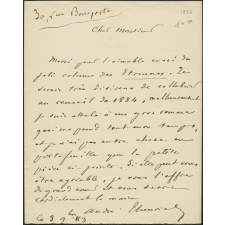 30, Rue Bonaparte
Cher Monsieur
Merci pour l'aimable envoi du
joli volume des Étrennes. Je
serais très désireux de collaborer
au recueil de 1884, malheureusement
je suis attelé à un gros roman
qui me prend tout mon temps,
et je n'ai pas autre chose en
portefeuille que la petite
pièce ci-jointe. Si elle peut vous
être agréable, je vous l'offre
de grand cœur et vous serre
cordialement la main
André Theuriet
ce 3 9bre 83